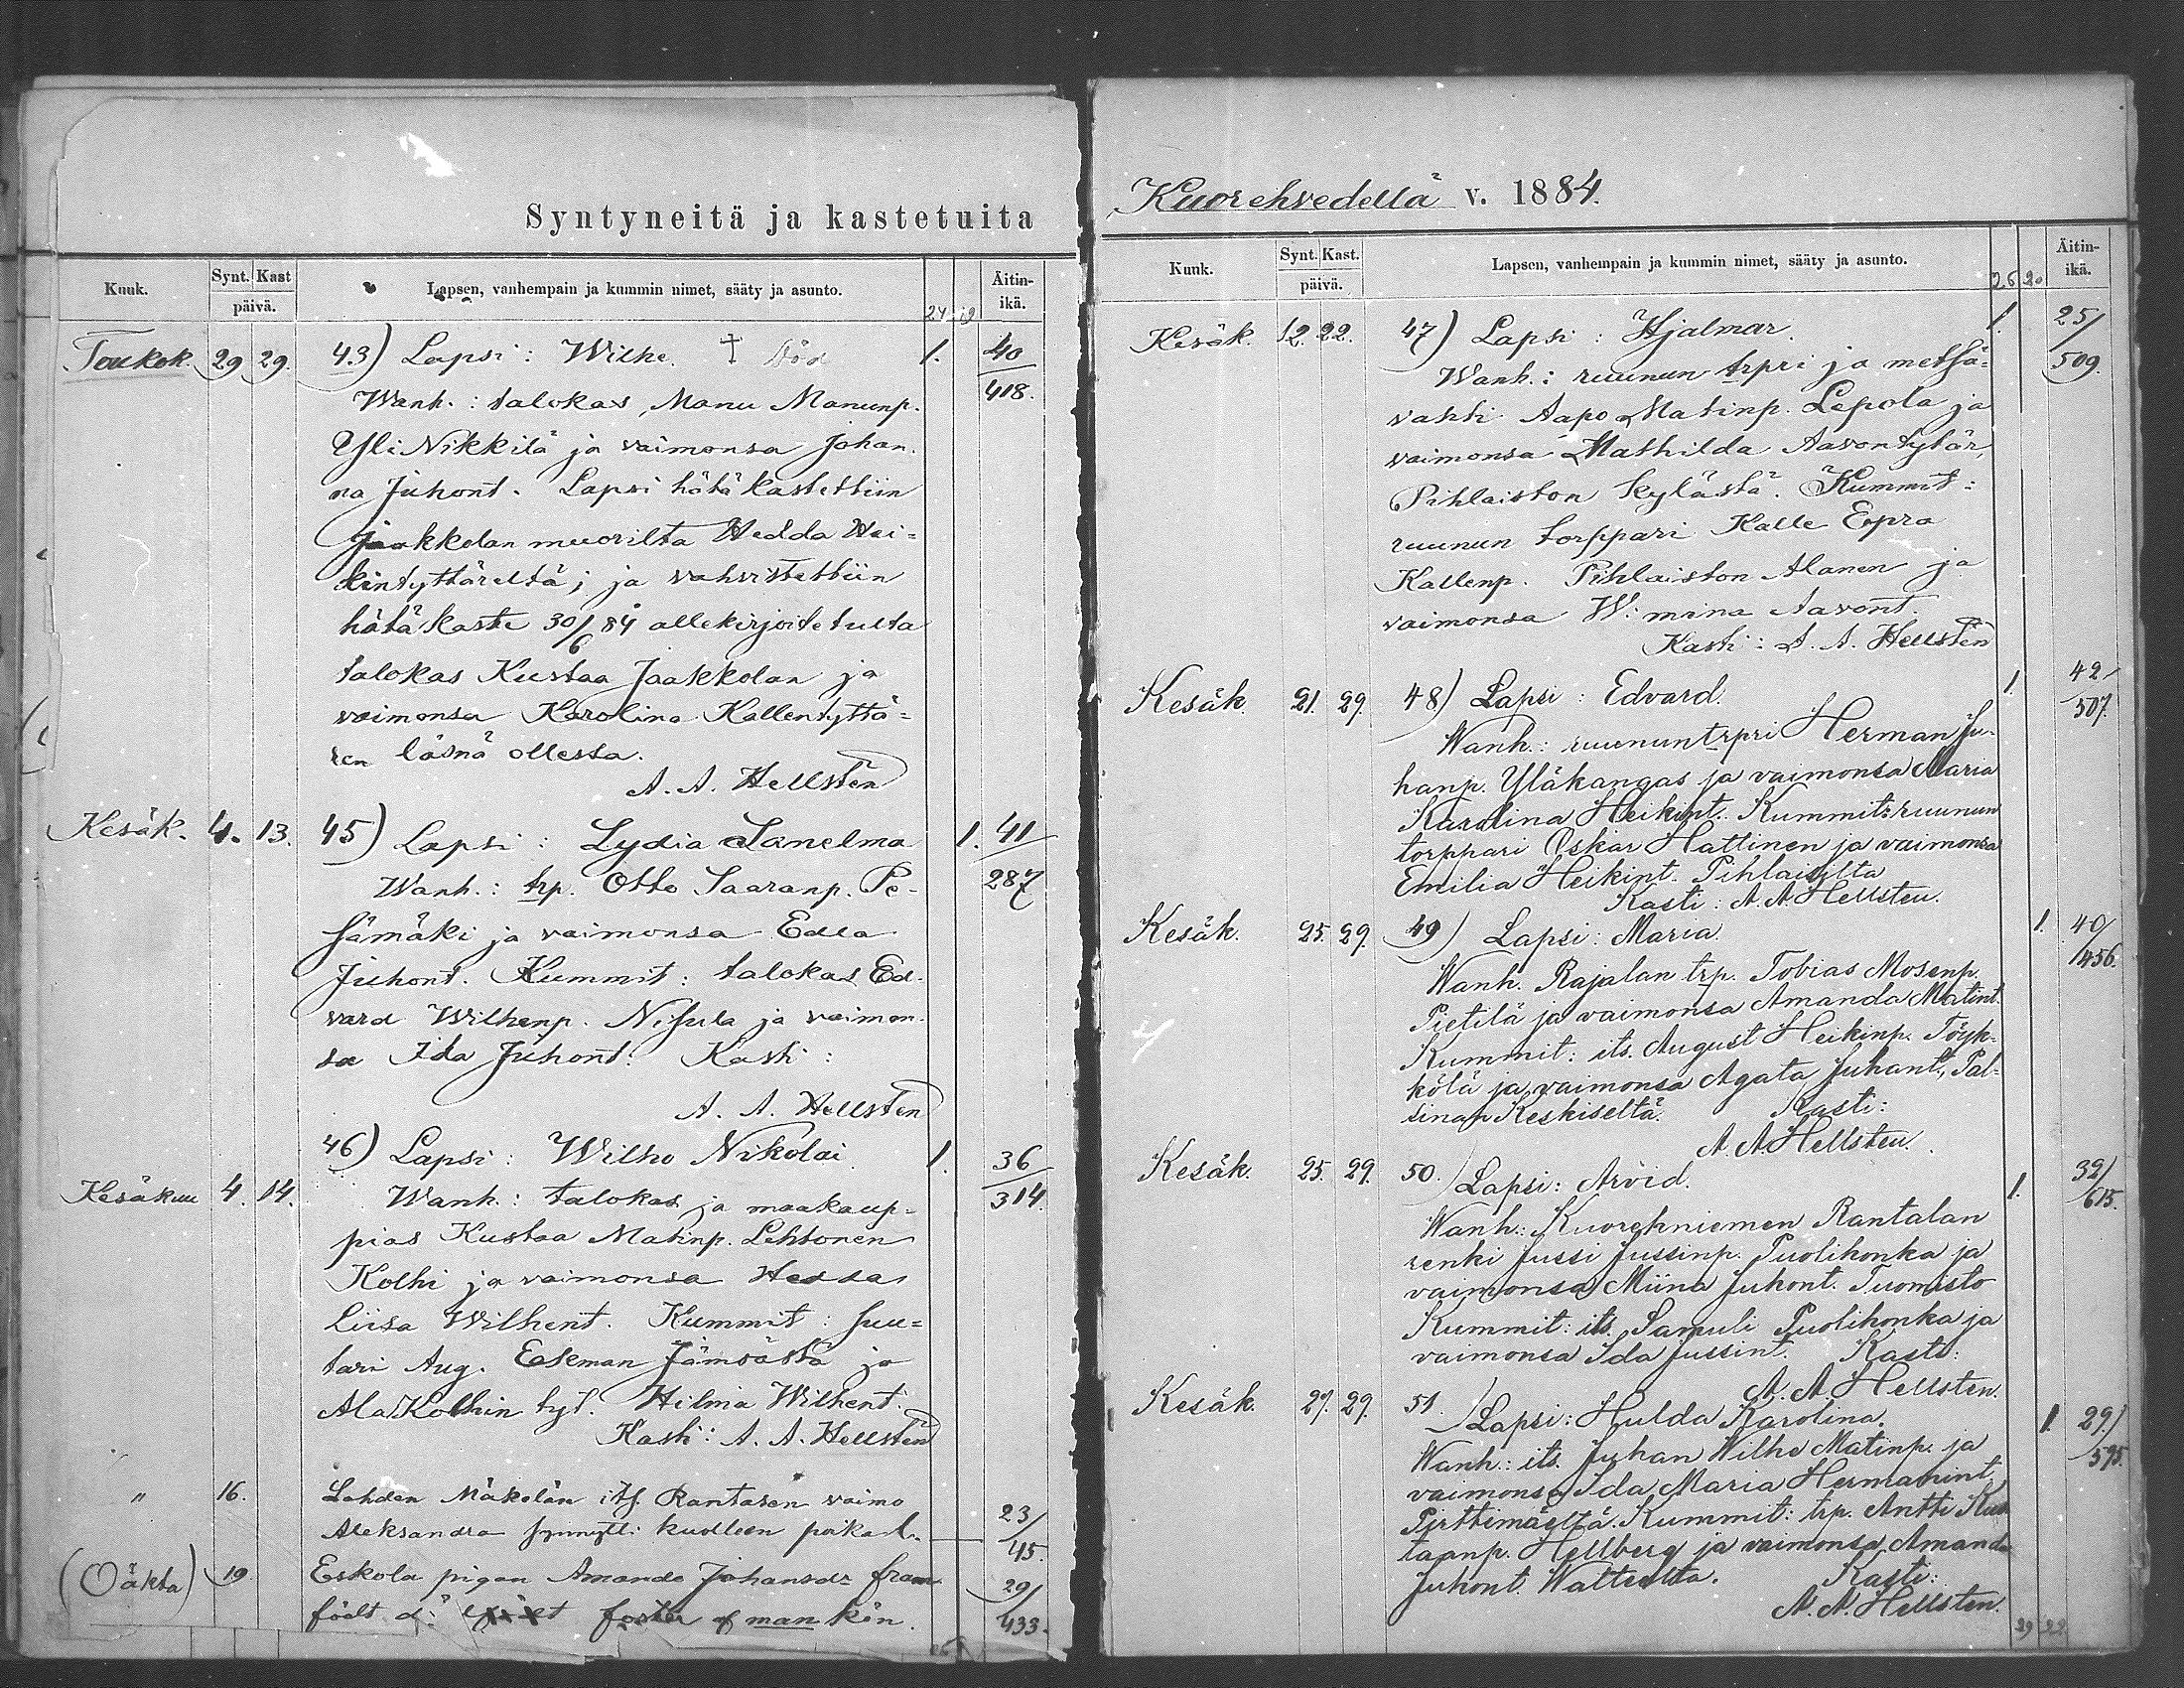 Syntyneitä ja kastetuita
Kuuk. Synt. Kast päivä. Lapsen, vanhempain ja kummin nimet, sääty ja asunto. 24 19 Äitin-ikä.
Toukok. 29 29. 43) Lapsi: Wilhe. † död 1. 40/418.
Wanh.: talokas, Manu Manunp.
Yli Nikkilä ja vaimonsa Johan-
na Juhont. Lapsi hätäkastettiin
Jaakkolan muorilta Hedda Hei=
kintyttäreltä; ja vahvistettiin
hätäkaste 30/6 84 allekirjoitetulta
talokas Kustaa Jaakkolan ja
vaimonsa Karolina Kallentyttä=
ren läsnä ollessa.
A. A. Hellstén
Kesäk. 4. 13. 45) Lapsi: Lydia Sanelma 1. 41/287
Wanh.: trp. Otto Saaranp. Pe-
sämäki ja vaimonsa Edla
Juhont. Kummit: talokas Ed-
vard Wilhenp. Nisula ja vaimon-
sa Ida Juhont. Kasti:
A. A. Hellsten
46) Lapsi: Wilho Nikolai 1. 36/314.
Kesäkuu 4. 14. Wanh.: talokas ja maakaup-
pias Kustaa Matinp. Lehtonen
Kolhi ja vaimonsa Hedda
Liisa Wilhent. Kummit: suu=
tari Aug. Ekman Jämsästä ja
Ala Kolhin tyt. Hilma Wilhent.
Kasti: A. A. Hellstén
" 16. Lahden Mäkelän its. Rantasen vaimo
Aleksandra synnytti kuolleen poikal. 23/45.
(Oäkta) 19 Eskola pigan Amanda Johansdr fram 29/433.
födt d: foster af mankön.
Kuorehvedellä v. 1884.
Kuuk. Synt. Kast. päivä. Lapsen, vanhempain ja kummin nimet, sääty ja asunto. 25 20 Äitin-ikä.
Kesäk. 12. 22. 47) Lapsi: Hjalmar 1. 25/509.
Wanh.: ruunun trpri ja metsä=
vahti Aapo Matinp. Lepola ja
vaimonsa Mathilda Aavontytär,
Pihlaiston kylästä. Kummit:
ruunun torppari Kalle Epra
Kallenp. Pihlaiston Alanen ja
vaimonsa W:mina Aavont.
Kasti: A. A. Hellstén
Kesäk. 21. 29. 48) Lapsi: Edvard. 1. 42/507.
Wanh.: ruununtrpri Herman Ju-
hanp. Yläkangas ja vaimonsa Maria
Karolina Heikint. Kummit: ruunun
torppari Oskar Hattinen ja vaimonsa
Emilia Heikint. Pihlaisilta
Kasti: A. A. Hellsten.
Kesäk. 25. 29. 49) Lapsi: Maria. 1. 40/456.
Wanh. Rajalan trp. Tobias Mosenp.
Pietilä ja vaimonsa Amanda Matint.
Kummit: its. August Heikinp. Töyk-
kölä ja vaimonsa Agata Juhant., Pal-
sinan Keskiseltä. Kasti:
A. A. Hellsten.
Kesäk. 25. 29. 50.) Lapsi: Arvid. 1. 32/615.
Wanh.: Kuorehniemen Rantalan
renki Jussi Jussinp. Puolihonka ja
vaimonsa Miina Juhont. Tuomisto
Kummit: its. Samuli Puolihonka ja
vaimonsa Ida Jussint. Kasti:
A. A. Hellsten.
Kesäk. 27. 29. 51.) Lapsi: Hulda Karolina. 1. 29/595.
Wanh.: its. Juhan Wilho Matinp. ja
vaimonsa Ida Maria Hermanint
Pirttimäeltä. Kummit: trp. Antti Kus
taanp. Hellberg ja vaimonsa Amanda
Juhont. Kasti:
A. A. Hellsten.
29 22